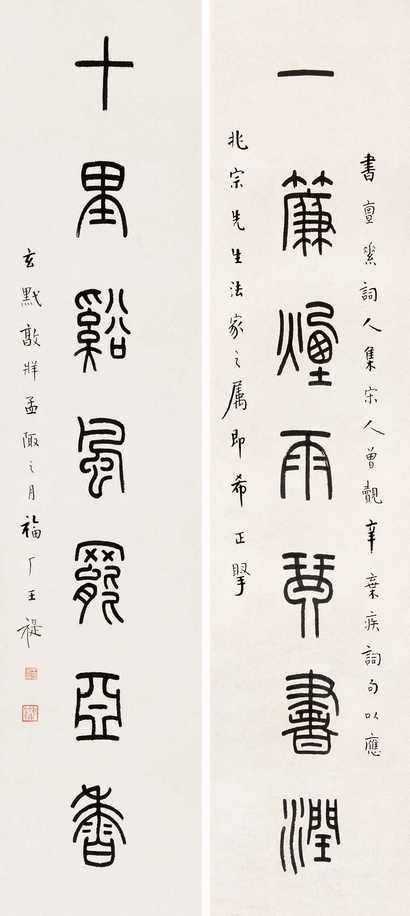 書亶素詞人集宋人曾覿辛棄疾詞句以應
一簾煙雨琴書潤
兆宗先生法家之属即希正掔
十里谿風罷亞香
玄黓敦牂孟陬之月福厂王禔